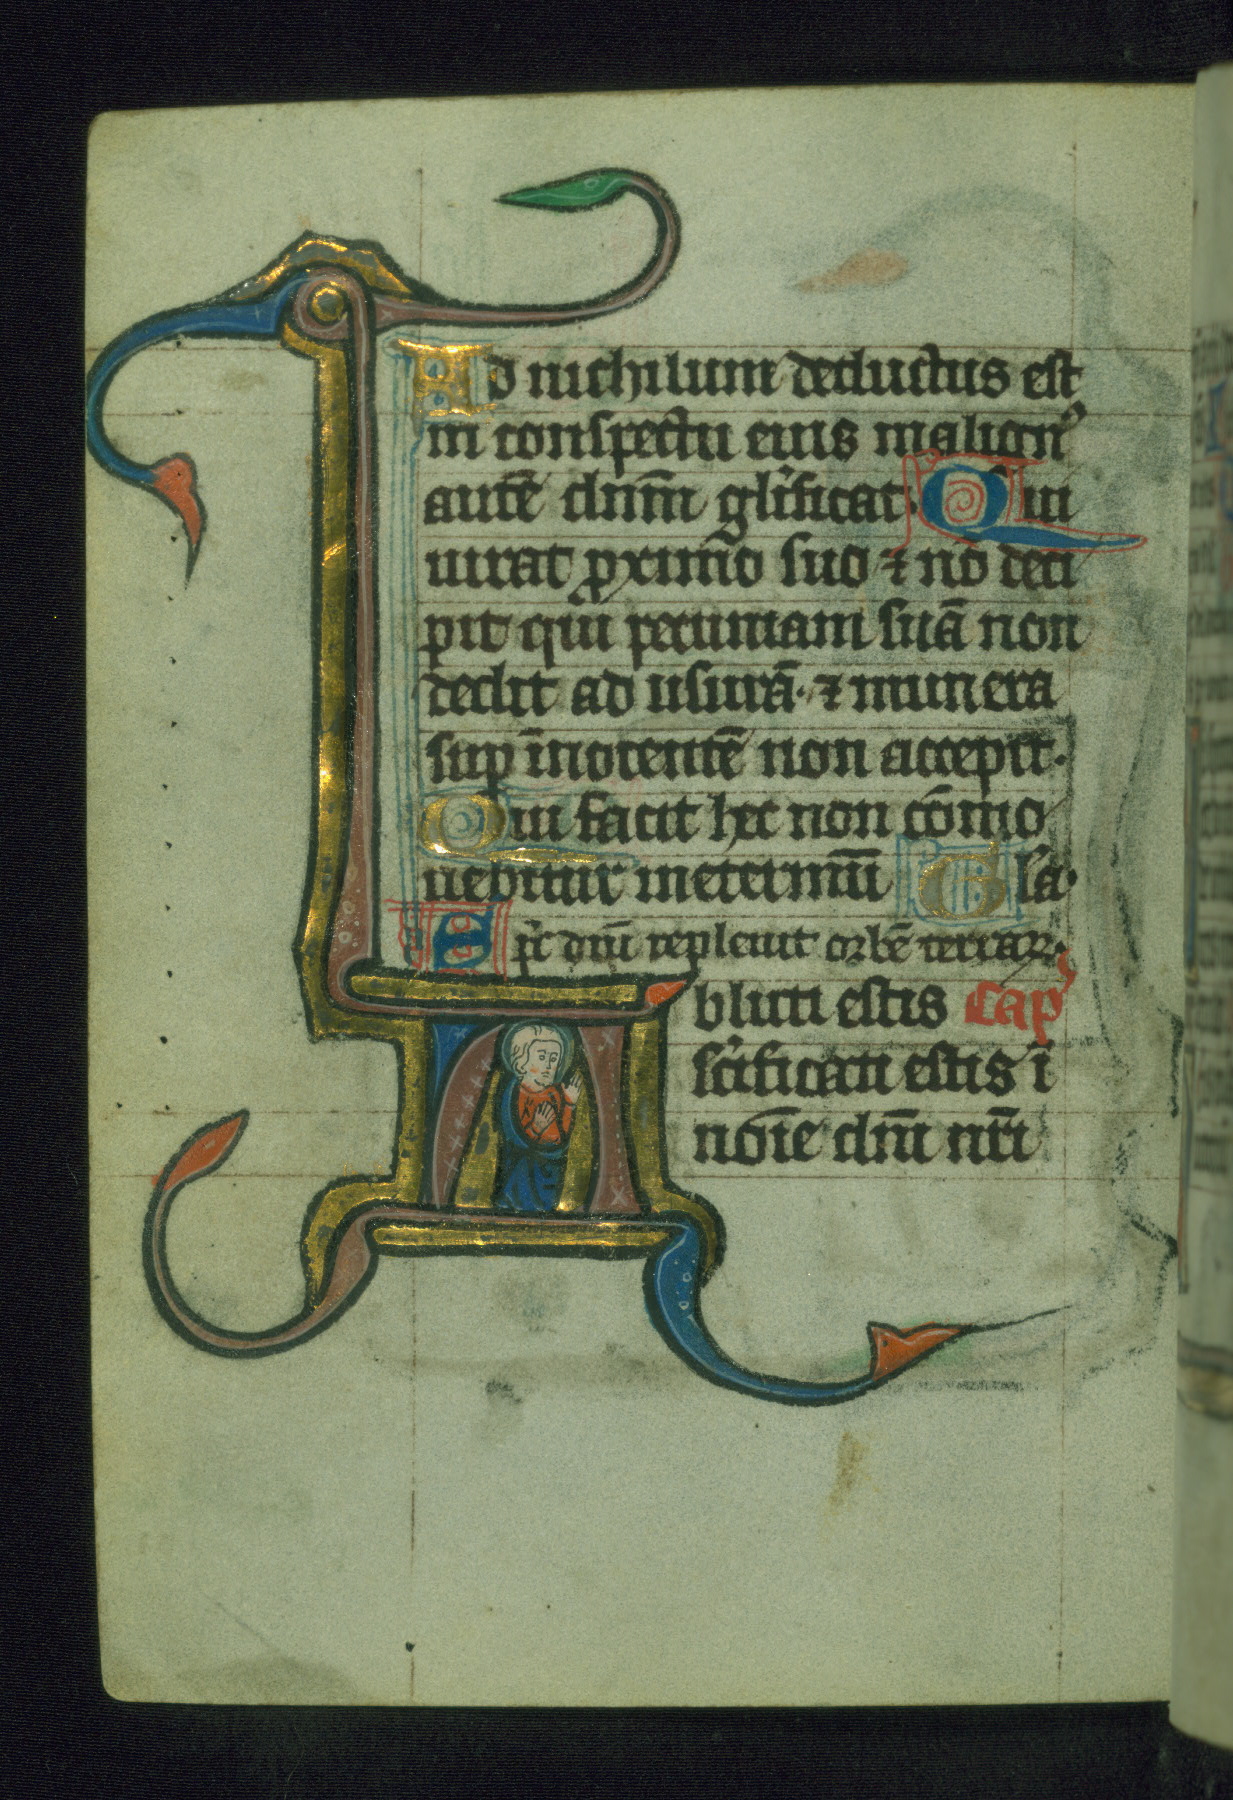 Ad nichilum deductus est
in conspectu eius malignꝰ
autē dnm̄ glificat· Qui
iurat ꝓximo suo ⁊ nō deci
pit qui pecuniam suā non
dedit ad usurā· ⁊ munera
suꝑ īnocentē non accepit·
Qui facit hec non cōmo
uebitur ineternūū Gla·
Sp̄c dn̄i repleuit orbē terrarꝝ·
Abluti estis Cap
scīficati estis ī
noīe dn̄i nr̄i